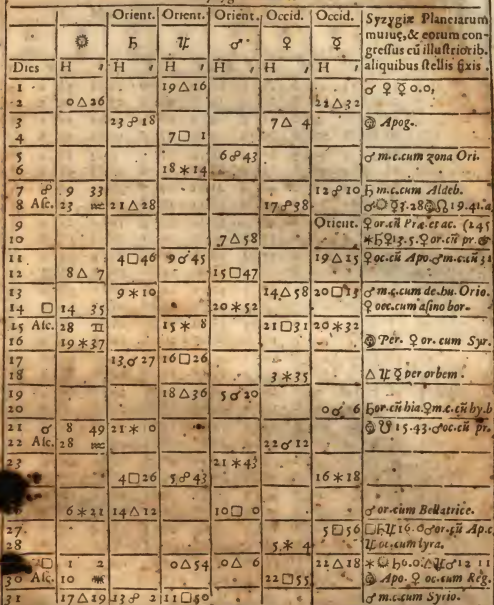 Orient. Orient. Orient. Occid. Occid. Syzygiæ Planetarum
☉ ♄ ♃ ♂ ♀ ☿ mutuę, & eorum con-
gressus cũ illustriorib.
Dies H ′ H ′ H ′ H ′ H ′ H ′ aliquibus stellis fixis.
1 19 △ 16 ☌ ♀ ☿ 0.0,
2 0 △ 26 22 △ 32
3 23 ☍ 18 7 △ 4 Apog.
4 7 □ 1
5 6 ☍ 43 ♂ m.c.cum zona Ori.
6 18 ✶ 14
7 ☍ 9 33 12 ☍ 10 ♄ m.c.cum Aldeb.
8 Asc. 23 ♒ 21 △ 28 17 ☍ 38
9 Orient. ♀ or.cũ Præ.et ac. (245
10 7 △ 58
11 4 □ 46 9 ☍ 45 19 △ 15 ♀ oc.cũ Apo. ♂ m.c.cũ 31
12 8 △ 7 15 □ 47
13 9 ✶ 10 14 △ 58 20 □ 13 ♂ m.c.cum de.hu. Orio.
14 □ 14 35 20 ✶ 52 ♀ occ.cum asino bor.
15 Asc. 28 ♊ 15 ✶ 8 21 □ 31 20 ✶ 32
16 19 ✶ 37 Per. ♀ or. cum Syr.
17 13 ☌ 27 16 □ 26
18 3 ✶ 35 △ ♃ ☿ per orbem.
19 18 △ 36 5 ☌ 20
20 0 ☌ 6 ♄ or.cũ hia. ♀ m.c.cũ hy.b
21 ☌ 8 49 21 ✶ 0 ☋ 15.43. ♂ oc.cũ pr.
22 Asc. 28 ♒ 22 ☌ 12
23 21 ✶ 43
4 □ 26 5 ☍ 43 16 ✶ 18
6 ✶ 21 14 △ 12 10 □ 0 ♂ or.cum Bellatrice.
27 5 □ 56
28 5 ✶ 4 ♃ oc.cum lyra.
□ 1 2 0 △ 54 0 △ 6 22 △ 18
30 Asc. 10 22 □ 55 Apo. ♀ oc.cum Reg.
31 17 △ 19 13 ☍ 2 11 □ 50 ♂ m.c.cum Syrio.